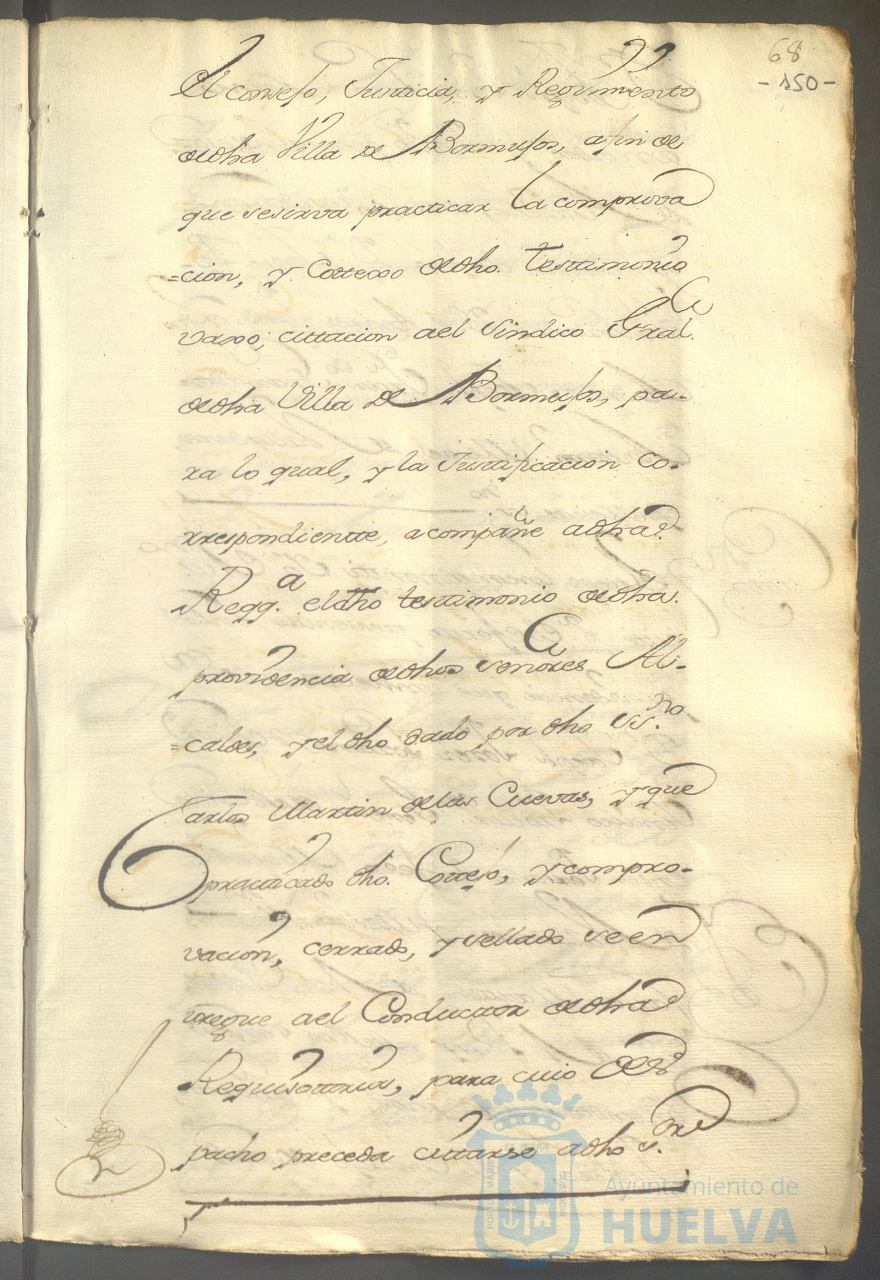 68
-150-
El consejo, Justicia, y Regimiento
dedha Villa de Bormujos, afin de
que sesirva practicar la comprova
=cion, y Cottexo dedho. testimonio
vaxo, cittacion ael Sindico Gral.
dedha Villa de Bormujos, pa-
ra lo qual, y la Justificacion co-
rrespondientte, acompañe adha
Reqq.a eldho testimonio dedha.
providencia dedhos señores Al-
=caldes, y el dho dado por dho ss.no
Carlos Martin delas Cuevas, y que
practicado dho. Cottejo, y compro-
vacion, cerrado, y sellado se en
tregue ael Conductor dedha
Requisittoria, para cuio des
pacho preceda cittarse adho s.re
Ayuntamiento de
HUELVA